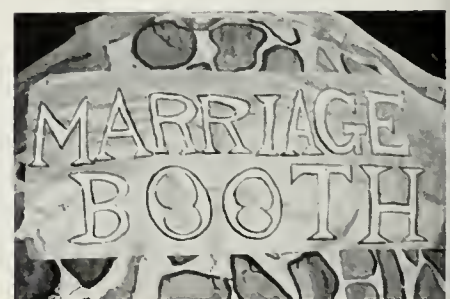 MARRIAGE
BOOTH